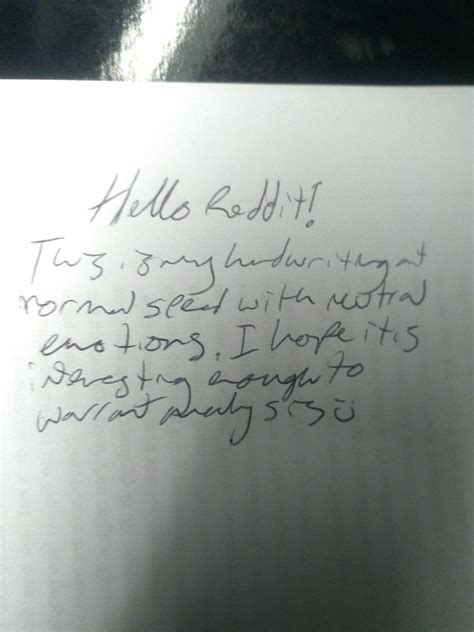 Hello Reddit!
This is my handwriting at
normal speed with neutral
emotions. I hope it is
interesting enough to
warrant analysis :)